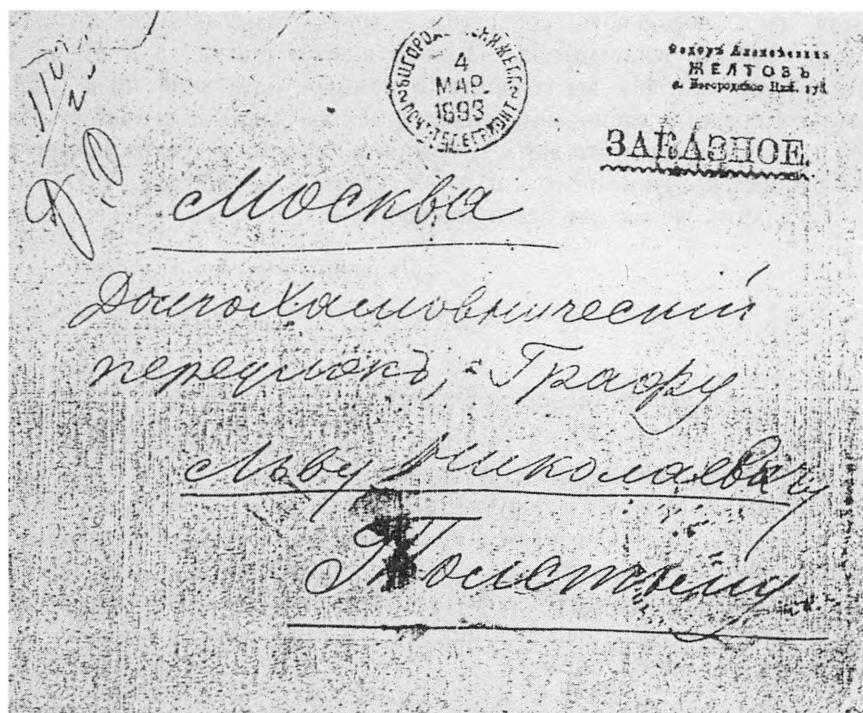 4
МАР.
1893
Ѳедоръ Алексѣевичъ
ЖЕЛТОВЪ
с. Богородское Ниж. губ.
ЗАКАЗНОЕ.
Москва
ДолгоХамовнический
переулокъ, Графу
Льву Николаевичу
Толстому